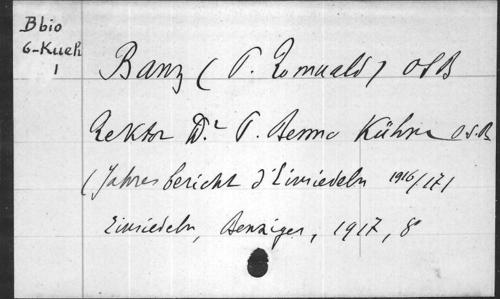 Bbio
G-Kueh
1
Banz (P. Romuald) OSB
Rektor Dr. P. Benno Kühne O.S.B.
(Jahresbericht d'Einsiedeln 1916/17)
Einsiedeln, Benziger, 1917, 8°